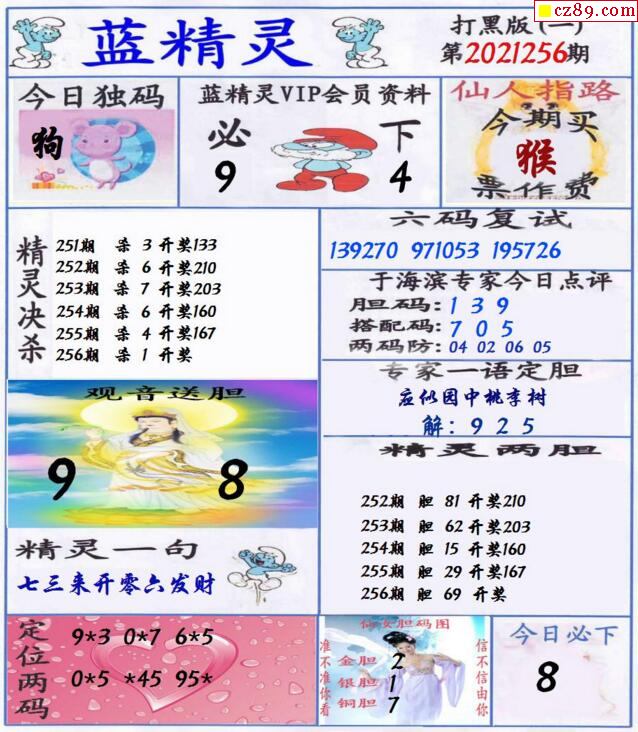 cz89.com
蓝精灵
打黑版(一)
第2021256期
今日独码
狗
蓝精灵VIP会员资料
必 下
9 4
仙人指路
今期买
猴
票作费
精灵决杀
251期 杀 3 开奖133
252期 杀 6 开奖210
253期 杀 7 开奖203
254期 杀 6 开奖160
255期 杀 4 开奖167
256期 杀 1 开奖
六码复试
139270 971053 195726
于海滨专家今日点评
胆码: 1 3 9
搭配码: 7 0 5
两码防: 04 02 06 05
专家一语定胆
应似园中桃李树
解: 9 2 5
观音送胆
9 8
精灵两胆
252期 胆 81 开奖210
253期 胆 62 开奖203
254期 胆 15 开奖160
255期 胆 29 开奖167
256期 胆 69 开奖
精灵一句
七三来开零六发财
定位两码
9*3 0*7 6*5
0*5 *45 95*
仙女胆码图
准不准你看
金胆 2
银胆 1
铜胆 7
信不信由你
今日必下
8